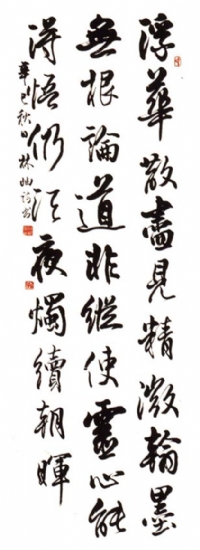 浮華散盡見精微翰墨
無根論道非縱使靈心能
得悟仍須夜燭續朝暉
辛巳秋日 林岫詩書